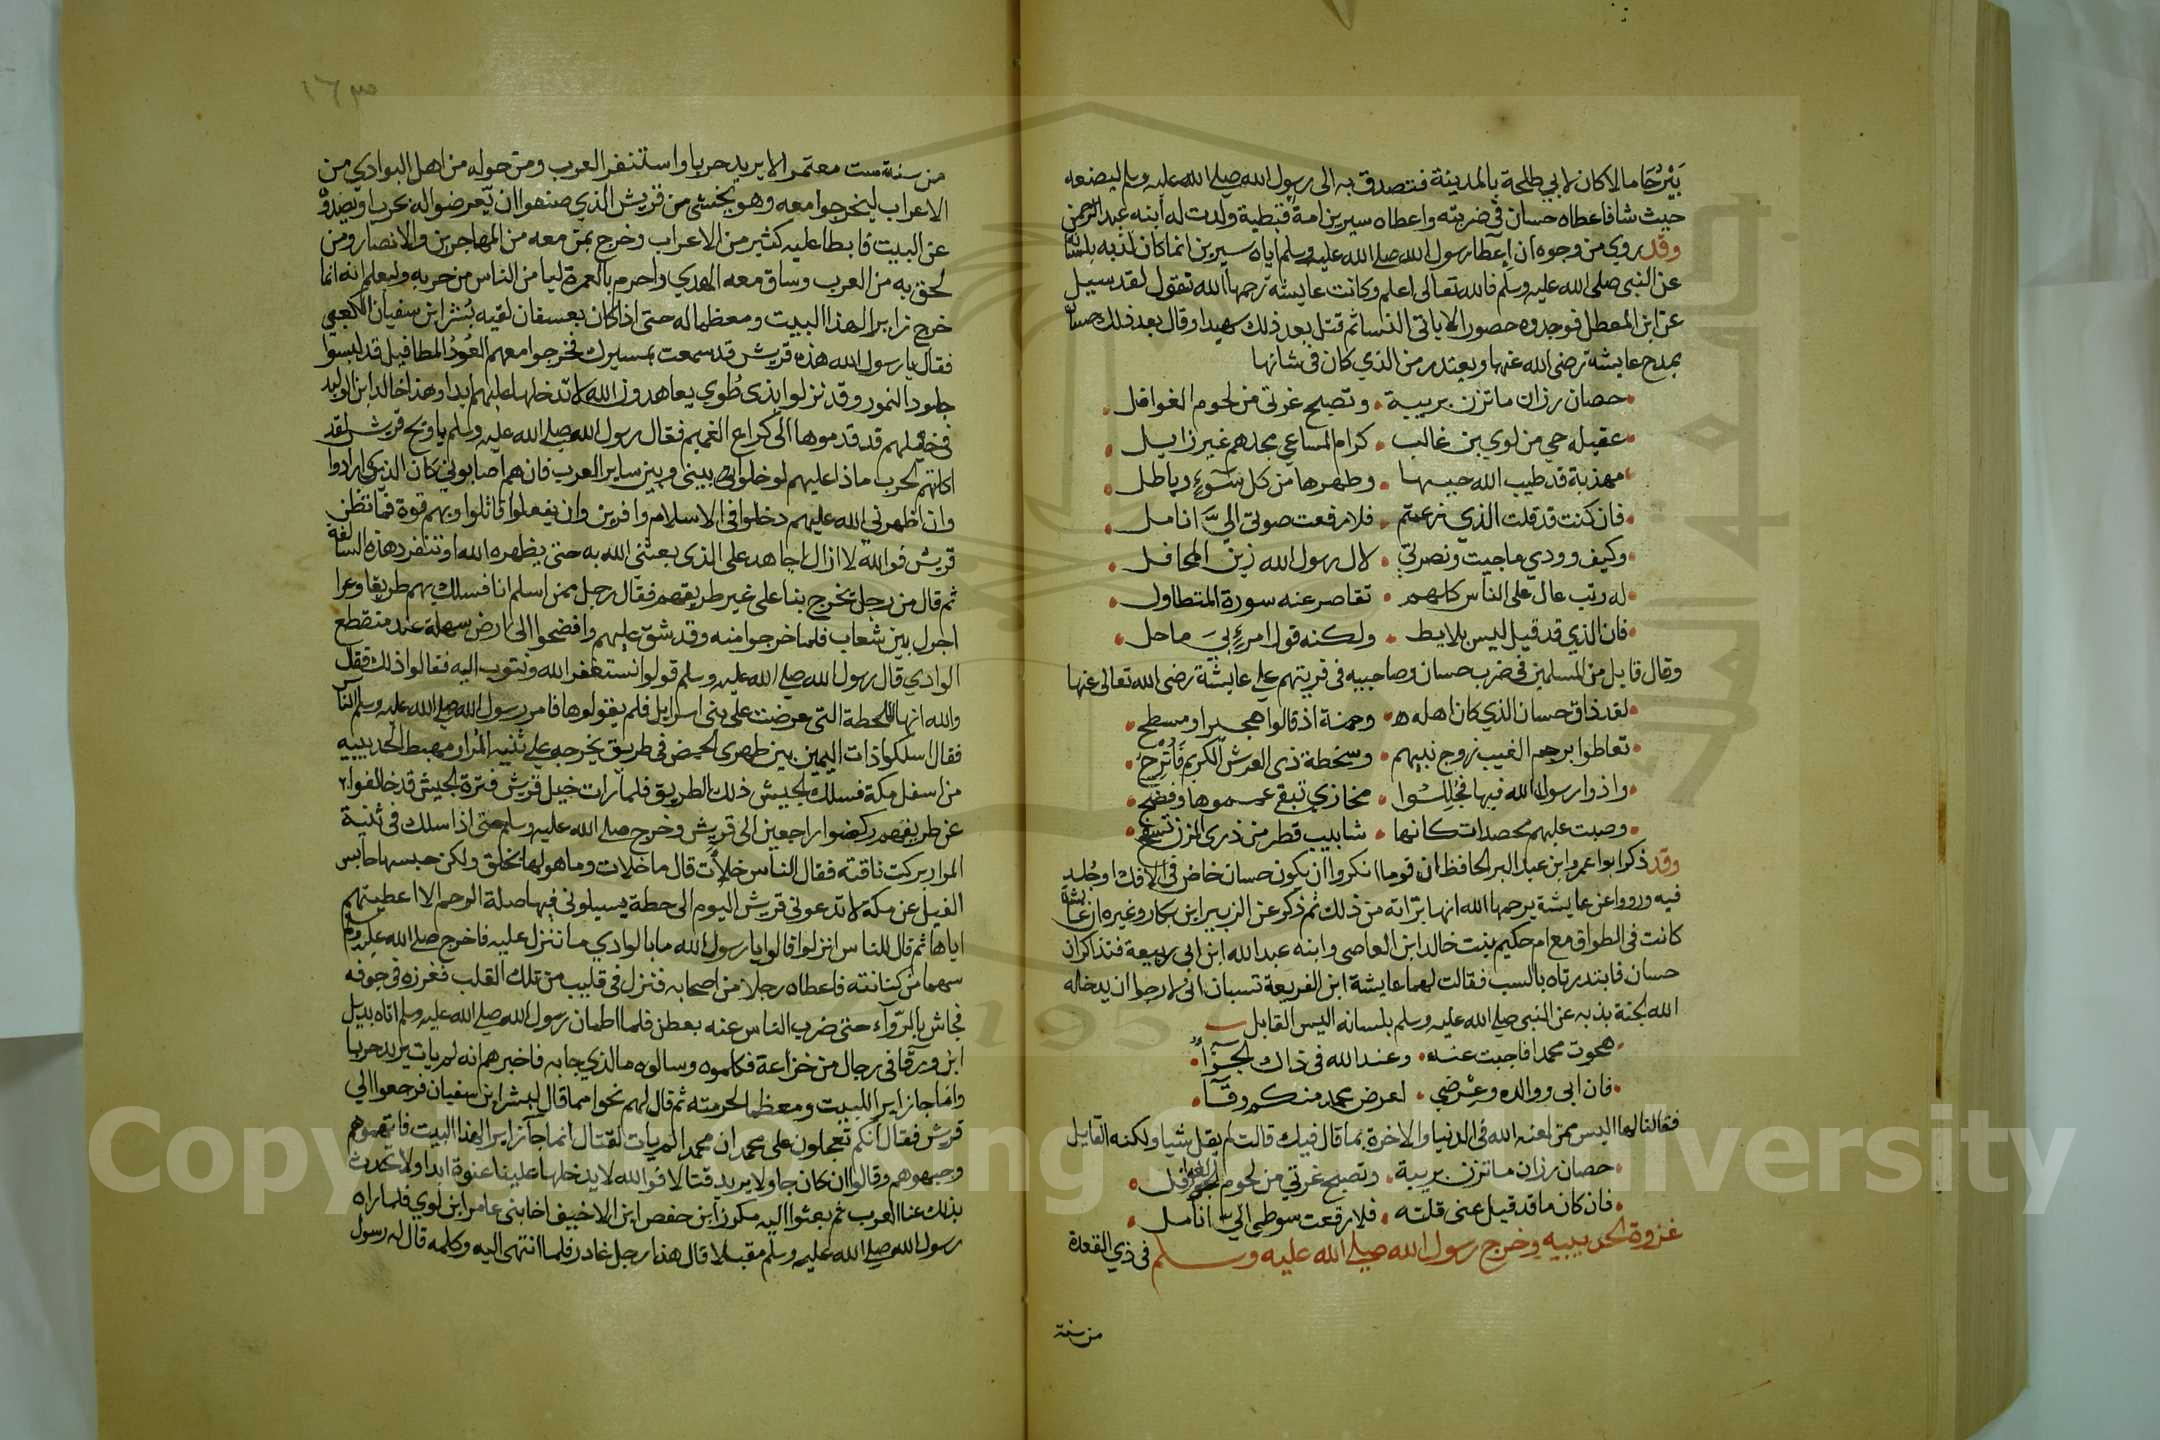 بَيْرُحَا مالا كان لابي طلحة بالمدينة فتصدق به الى رسول الله صلى الله عليه وسلم ليضعه
حيث شا فاعطاه حسان في ضربته واعطاه سيرين امة قبطية ولدت له ابنه عبد الرحمن
وقد روي من وجوه ان اعطا رسول الله صلى الله عليه وسلم اياه سيرين انما كان لذبه بلسانه
عن النبي صلى الله عليه وسلم فالله تعالى اعلم وكانت عايشة رحمها الله تقول لقد سيل
عن ابن المعطل فوجدوه حصورا لا ياتي النسا ثم قتل بعد ذلك شهيدا وقال بعد ذلك حسان
يمدح عايشة رضي الله عنها ويعتذر من الذي كان في شانها
حصان رزان ما تزن بريبة • وتصبح غرثى من لحوم الغوافل
عقيلة حي من لوي بن غالب • كرام المساعي مجدهم غير زايل
مهذبة قد طيب الله خيمها • وطهرها من كل سوٓءٍ وباطل
فان كنت قد قلت الذي زعمتم • فلا رفعت صوتي اليَّ انامل
وكيف وودي ما حييت ونصرتي • لال رسول الله زين المحافل
له رتب عال على الناس كلهم • تقاصر عنه سورة المتطاول
فان الذي قد قيل ليس بلايط • ولكنه قول امرءٍ بيَ ماحل
وقال قايل من المسلمين في ضرب حسان وصاحبيه في فريتهم على عايشة رضي الله تعالى عنها
لقد ذاق حسان الذي كان اهله • وحمنة اذ قالوا هجيرا ومسطح
تعاطوا برجم الغيب زوج نبيهم • وسخطة ذي العرش الكريم فَأُتْرِحُ
واذوا رسول الله فيها فجُلِّلُوا • مخازي تبقى عمموها وفضح
وصبت عليهم محصدات كانها • شابيب قطر من ذرى المزن تسفح
وقد ذكر ابو عمر وابن عبد البر الحافظ ان قوما انكروا ان يكون حسان خاض في الافك او جُلِد
فيه ورووا عن عايشة يرحمها الله انها براته من ذلك ثم ذكر عن الزبير ابن بكار وغيره ان عايشة
كانت في الطواف مع ام حكيم بنت خالد ابن العاصي وابنه عبد الله ابن ابي ربيعة فتذاكران
حسان فابتدرتاه بالسب فقالت لهما عايشة ابن الفريعة تسبان اني لارجوا ان يدخله
الله الجنة بذبه عن النبي صلى الله عليه وسلم بلسانه اليس القايل
هجوت محمدا فاجبت عنه • وعند الله في ذاك الجزآءُ
فان ابي ووالده وعرضي • لعرض محمد منكم وقآ
فقالتا لها اليس ممن لعنه الله في الدنيا والاخرة بما قال فيك قالت لم يقل شيا ولكنه القايل
حصان رزان ما تزن بريبة • وتصبح غرثى من لحوم الغوافل
فان كان ما قد قيل عني قلته • فلا رفعت سوطي الي انامل
غزوة الحديبيه وخرج رسول الله صلى الله عليه وسلم في ذي القعدة
من سنة
١٦٣
من سنة ست معتمرا لا يريد حربا واستنفر العرب ومن حوله من اهل البوادي من
الاعراب ليخرجوا معه وهو يخشى من قريش الذي صنعوا ان يعرضوا له بحرب او يصدوه
عن البيت فابطا عليه كثير من الاعراب وخرج بمن معه من المهاجرين والانصار ومن
لحق به من العرب وساق معه الهدي واحرم بالعمرة ليامن الناس من حربه وليعلم انه انما
خرج زايرا لهذا البيت ومعظما له حتى اذا كان بعسفان لقيه بُشر ابن سفيان الكعبي
فقال يا رسول الله هذه قريش قد سمعت بمسيرك فخرجوا معهم العُوذُ المطافيل قد لبسوا
جلود النمور وقد نزلوا بذي طُوي يعاهدون الله لا تدخلها عليهم ابدا وهذا خالد ابن الوليد
في خيلهم قد قدموها الى كراع الغميم فقال رسول الله صلى الله عليه وسلم يا ويح قريش لقد
اكلتهم الحرب ماذا عليهم لو خلوا بيني وبين ساير العرب فان هم اصابوني كان الذي ارادوا
وان اظهرني الله عليهم دخلوا في الاسلام وافرين وان يفعلوا قاتلوا وبهم قوة فما تظن
قريش فوالله لا ازال اجاهد على الذي بعثني الله به حتى يظهره الله او تنفرد هذه السالفة
ثم قال من رجل يخرج بنا على غير طريقهم فقال رجل ممن اسلم انا فسلك بهم طريقا وعرا
اجرل بين شعاب فلما خرجوا منه وقد شق عليهم وافضحوا الى ارض سهلة عند منقطع
الوادي قال رسول الله صلى الله عليه وسلم قولوا نستغفر الله ونتوب اليه فقالوا ذلك فقال
والله انها للحطة التي عرضت على بني اسرايل فلم يقولوها فامر رسول الله صلى الله عليه وسلم الناس
فقال اسلكوا ذات اليمين بين ظهري الحمض في طريق يخرجه على ثنيه المرار مهبط الحديبيه
من اسفل مكة فسلك الجيش ذلك الطريق فلما رات خيل قريش فترة الجيش قد خالفوا
عن طريقهم ركضوا راجعين الى قريش وخرج صلى الله عليه وسلم حتى اذا سلك في ثنية
المرار بركت ناقته فقال الناس خلأت قال ما خلات وما هو لها بخلق ولكن حبسها حابس
الفيل عن مكة لا تدعوني قريش اليوم الى خطة يسيلوني فيها صلة الرحم الا اعطيتهم
اياها ثم قال للناس انزلوا قالوا يا رسول الله ما بالوادي ما ننزل عليه فاخرج صلى الله عليه وسلم
سهما من كنانته فاعطاه رجلا من اصحابه فنزل في قليب من تلك القلب فغرزه في جوفه
فجاش بالرّوآء حتى ضرب الناس عنه بعطن فلما اطمان رسول الله صلى الله عليه وسلم اتاه بديل
ابن ورقا في رجال من خزاعة فكلموه وسالوه ما الذي جا به فاخبرهم انه لم يات يريد حربا
وانما جا زايرا للبيت ومعظما لحرمته ثم قال لهم نحوا مما قال لبشر ابن سفيان فرجعوا الي
قريش فقال انكم تعجلون على محمد ان محمدا لم يات لقتال انما جآ زايرا لهذا البيت فاتهموهم
وجبهوهم وقالوا ان كان جا ولا يريد قتالا فوالله لا يدخلها علينا عنوة ابدا ولا تحدث
بذلك عنا العرب ثم بعثوا اليه مكرز ابن حفص ابن الاخيف اخا بني عامر ابن لوي فلما راه
رسول الله صلى الله عليه وسلم مقبلا قال هذا رجل غادر فلما انتهى اليه وكلمه قال له رسول
Copy King Saud University